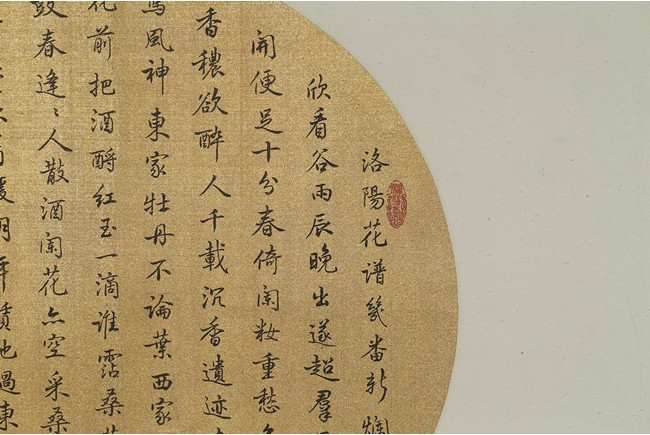 洛陽花谱幾番新爛
欣看谷雨辰晚出遂超羣
開便足十分春倚闌妝重愁
香穠欲醉人千載沉香遺迹
風神東家牡丹不論葉西家
花前把酒酹红玉一滴谁霑桑
鼓春逢〻人散酒闌花亦空采桑
暖明年賸地過東